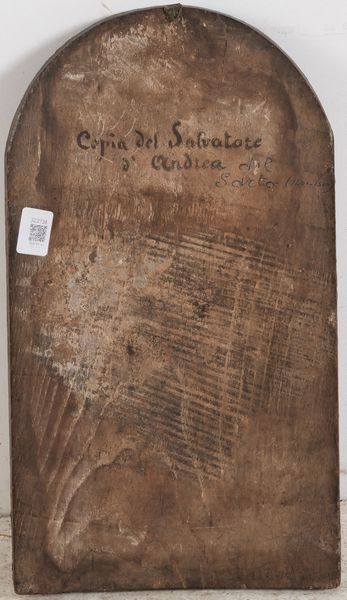 Copia del Salvatore
d' Andrea del
Sarto